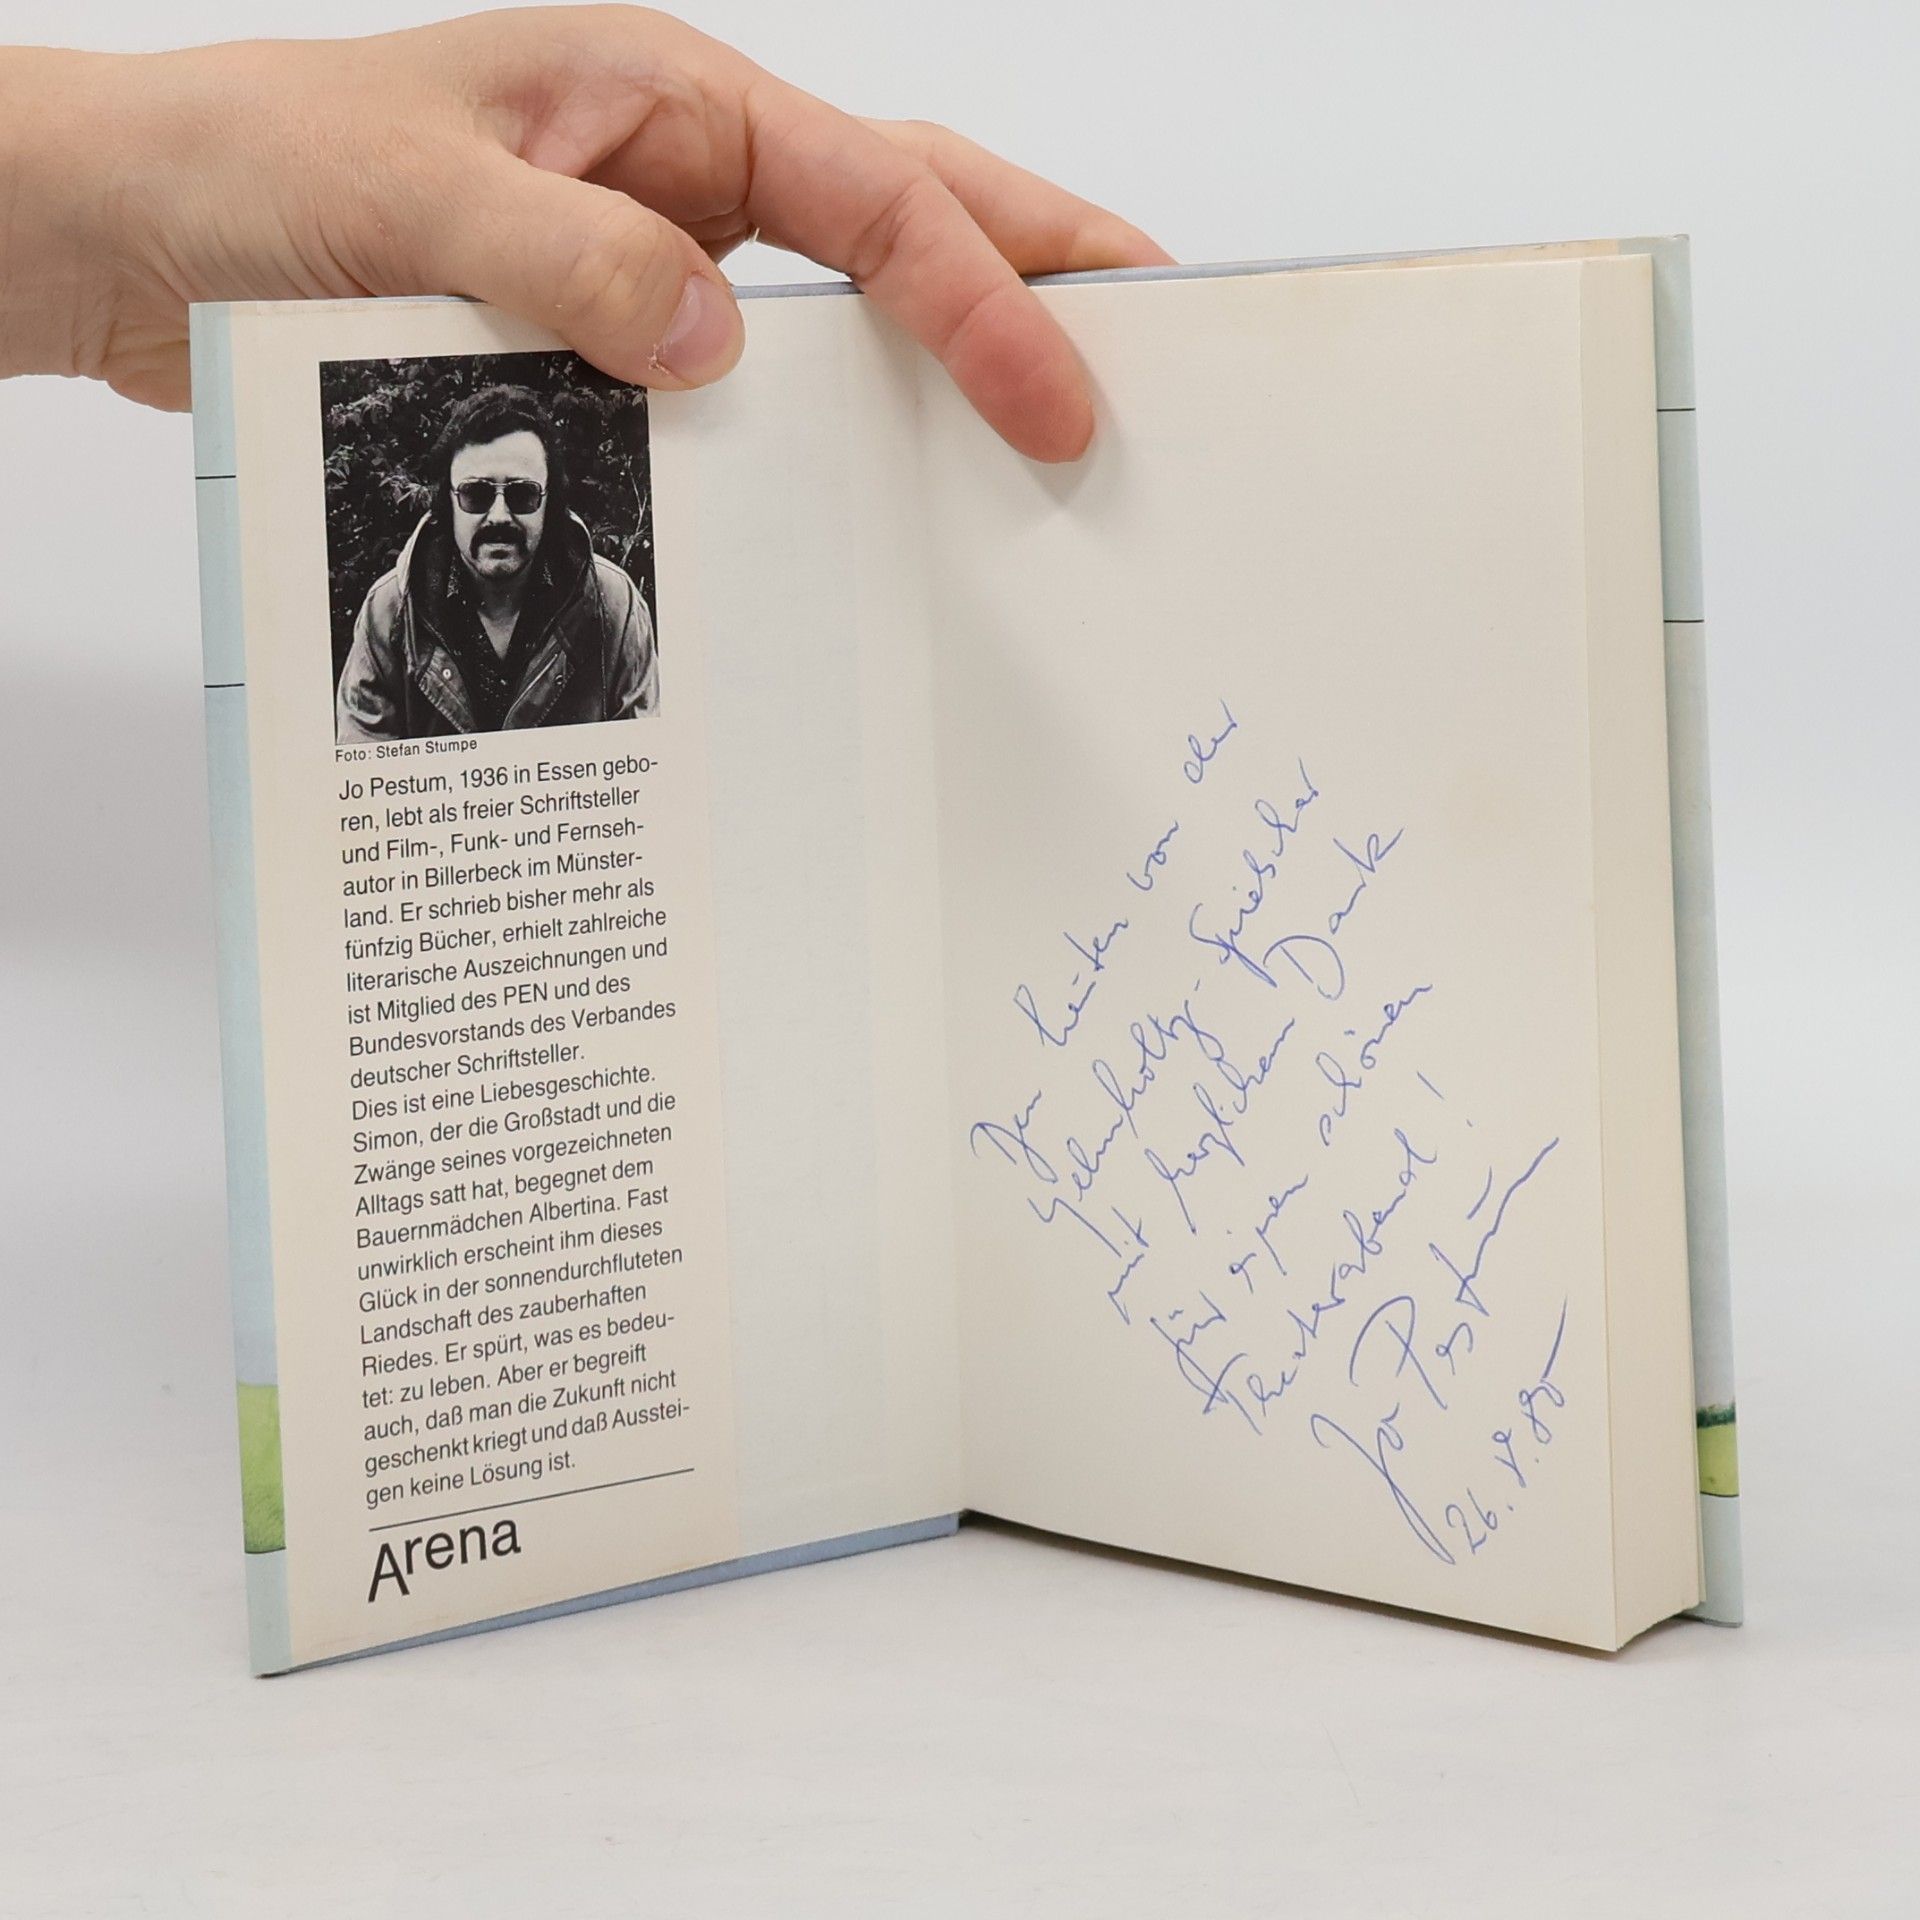 Foto: Stefan Stumpe
Jo Pestum, 1936 in Essen gebo-
ren, lebt als freier Schriftsteller
und Film-, Funk- und Fernseh-
autor in Billerbeck im Münster-
land. Er schrieb bisher mehr als
fünfzig Bücher, erhielt zahlreiche
literarische Auszeichnungen und
ist Mitglied des PEN und des
Bundesvorstands des Verbandes
deutscher Schriftsteller.
Dies ist eine Liebesgeschichte.
Simon, der die Großstadt und die
Zwänge seines vorgezeichneten
Alltags satt hat, begegnet dem
Bauernmädchen Albertina. Fast
unwirklich erscheint ihm dieses
Glück in der sonnendurchfluteten
Landschaft des zauberhaften
Riedes. Er spürt, was es bedeu-
tet: zu leben. Aber er begreift
auch, daß man die Zukunft nicht
geschenkt kriegt und daß Ausstei-
gen keine Lösung ist.
Arena
Den Leuten von der
Helmholtz-Spielschar
mit herzlichem Dank
für einen schönen
Theaterabend!
Jo Pestum
26.8.85